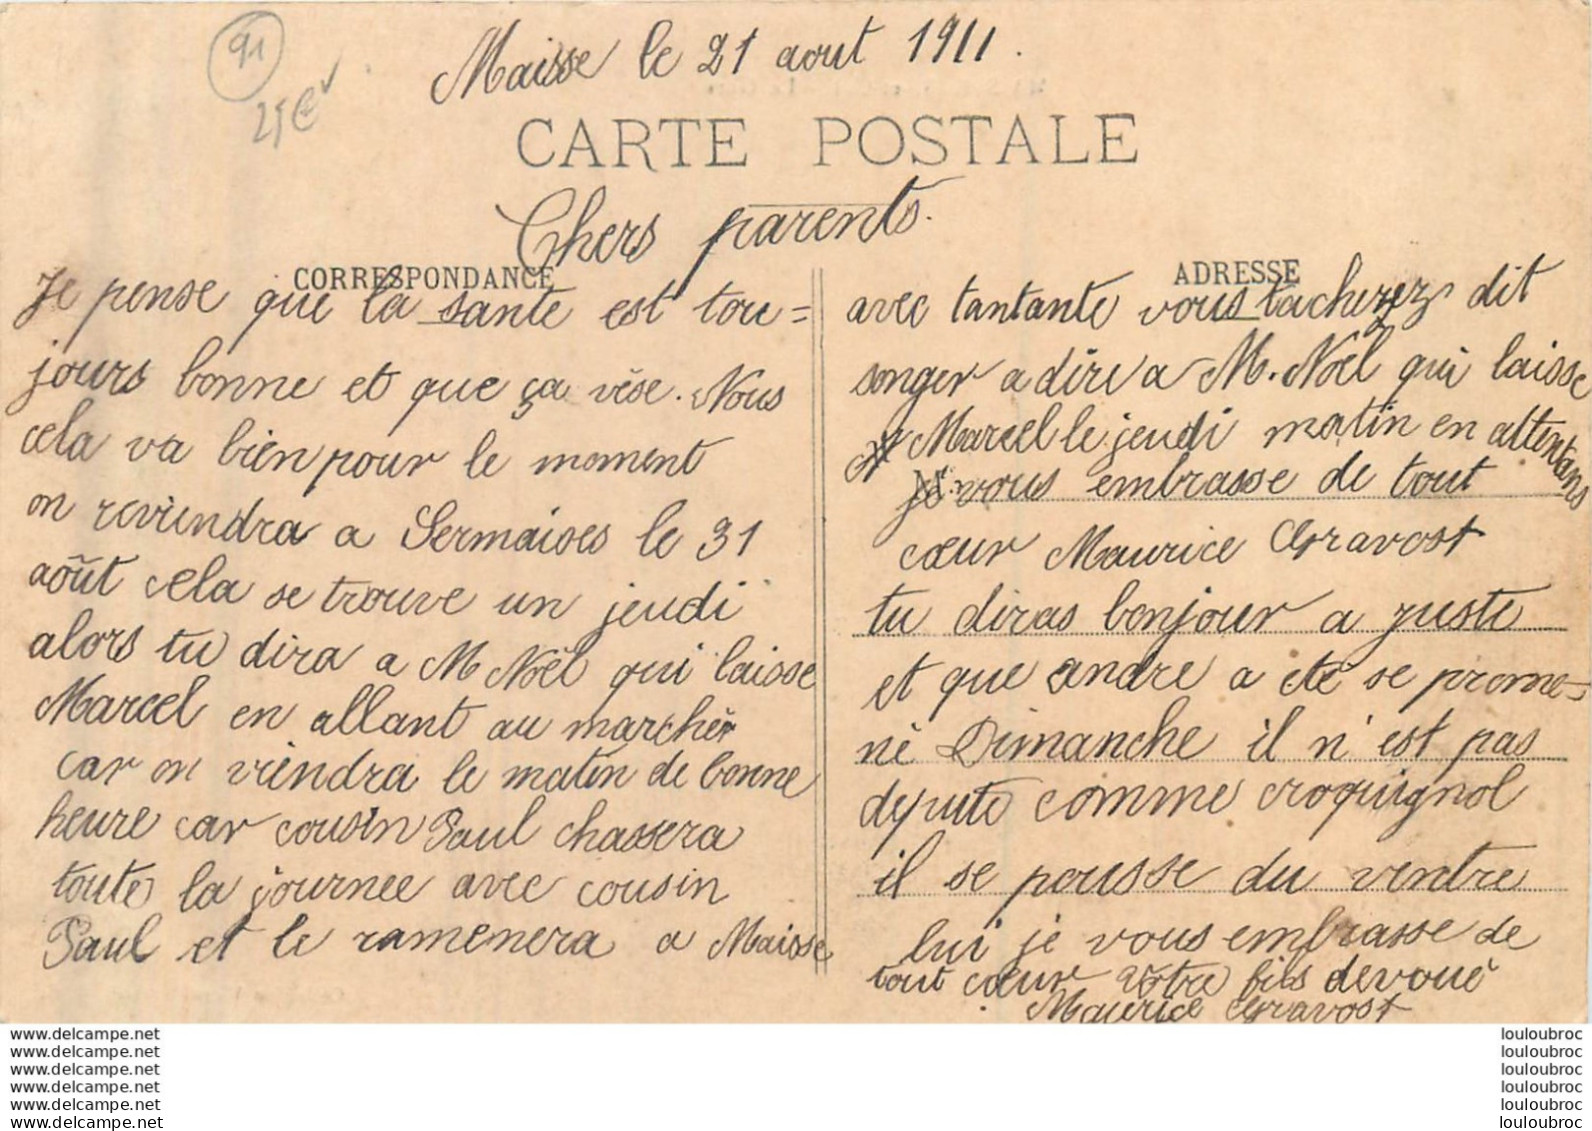 91
25€
Maisse le 21 aout 1911.
CARTE POSTALE
Chers parents.
CORRESPONDANCE
Je pense que la sante est tou=
jours bonne et que ça vèse. Nous
cela va bien pour le moment
on reviendra a Sermaises le 31
août cela se trouve un jeudi
alors tu dira a M Noël qui laisse
Marcel en allant au marcher
car on viendra le matin de bonne
heure car cousin Paul chassera
toute la journee avec cousin
Paul et le ramenera a Maisse
ADRESSE
avec tantante vous tacherez dit
songer a dire a M. Noël qui laisse
Marcel le jeudi matin en attentans
je vous embrasse de tout
cœur Maurice Gravost
tu diras bonjour a Juste
et que andre a ete se prome=
né Dimanche il n'est pas
depute comme croquignol
il se pousse du ventre
lui je vous embrasse de
tout cœur votre fils devoué
Maurice Gravost
www.delcampe.net
www.delcampe.net
www.delcampe.net
www.delcampe.net
www.delcampe.net
www.delcampe.net
louloubroc
louloubroc
louloubroc
louloubroc
louloubroc
louloubroc